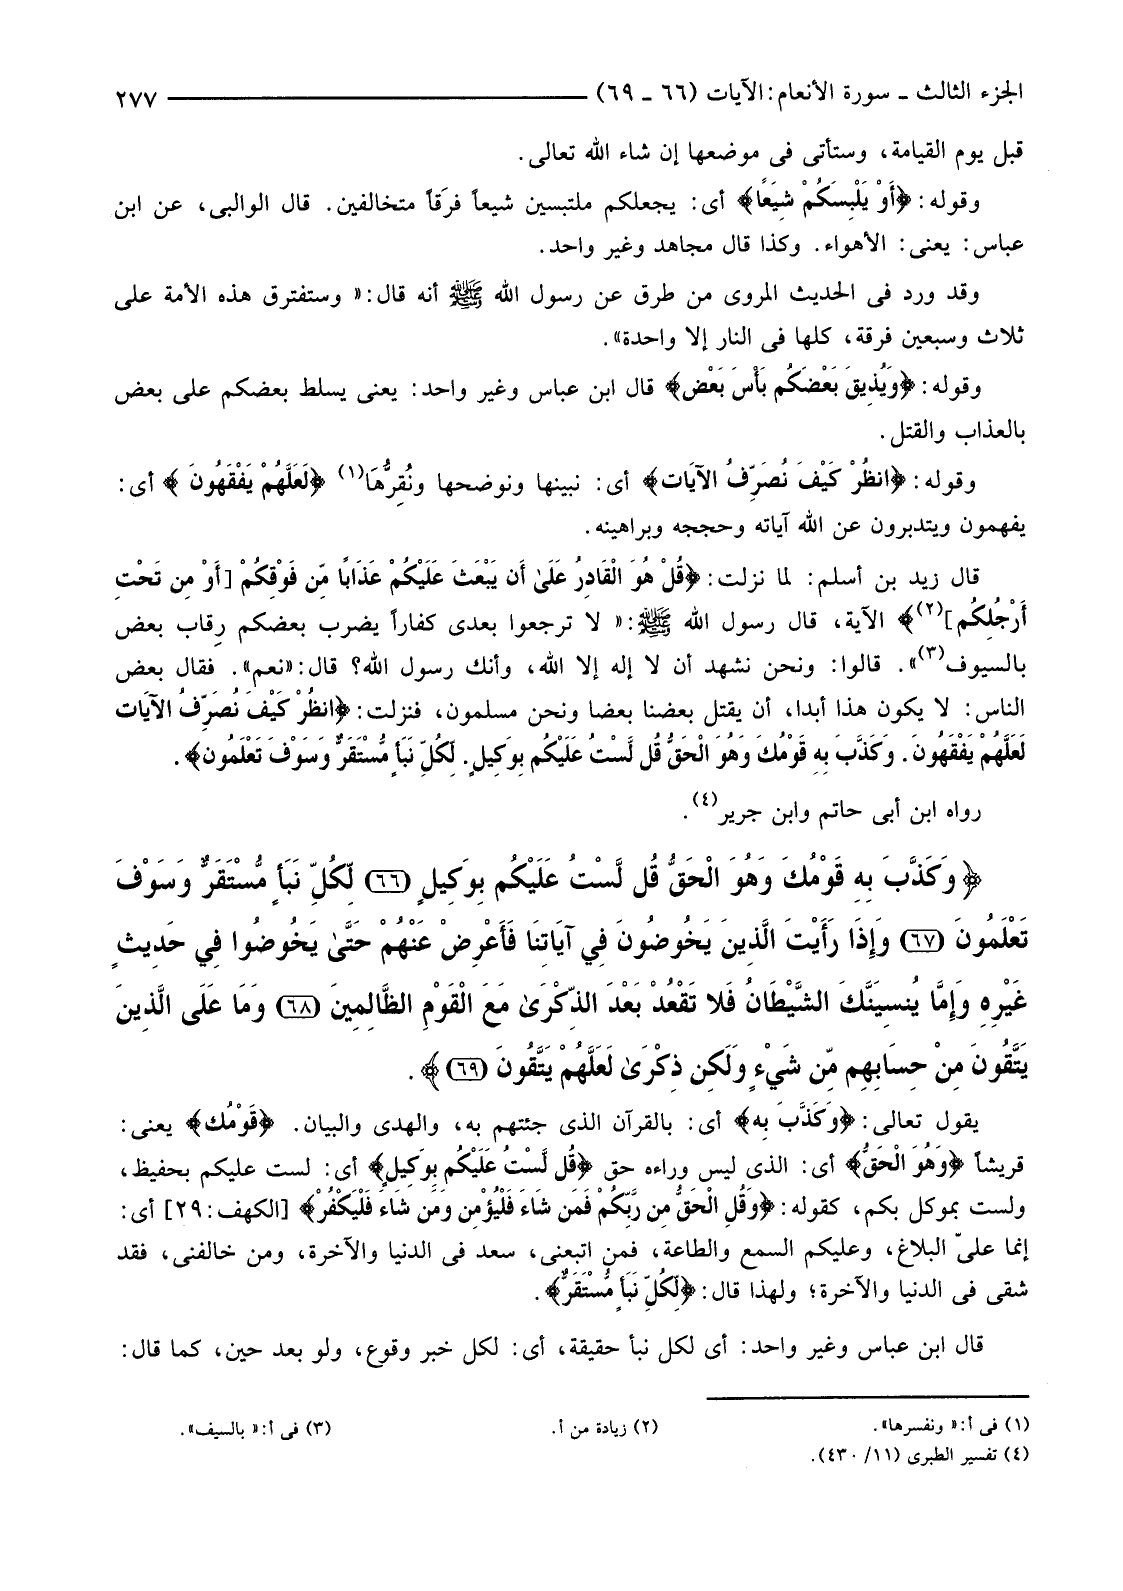 الجزء الثالث ـ سورة الأنعام: الآيات (٦٦ ـ ٦٩) ٢٧٧
قبل يوم القيامة، وستأتى فى موضعها إن شاء الله تعالى.
وقوله: ﴿أَوْ يَلْبِسَكُمْ شِيَعًا﴾ أى: يجعلكم ملتبسين شيعاً فرَقاً متخالفين. قال الوالبى، عن ابن
عباس: يعنى: الأهواء. وكذا قال مجاهد وغير واحد.
وقد ورد فى الحديث المروى من طرق عن رسول الله ﷺ أنه قال:« وستفترق هذه الأمة على
ثلاث وسبعين فرقة، كلها فى النار إلا واحدة».
وقوله: ﴿وَيُذِيقَ بَعْضَكُم بَأْسَ بَعْض﴾ قال ابن عباس وغير واحد: يعنى يسلط بعضكم على بعض
بالعذاب والقتل.
وقوله: ﴿انظُرْ كَيْفَ نُصَرِّفُ الآيَات﴾ أى: نبينها ونوضحها ونُقِرُّهَا(١) ﴿لَعَلَّهُمْ يَفْقَهُونَ ﴾ أى:
يفهمون ويتدبرون عن الله آياته وحججه وبراهينه.
قال زيد بن أسلم: لما نزلت: ﴿قُلْ هُوَ الْقَادِرُ عَلَىٰ أَن يَبْعَثَ عَلَيْكُمْ عَذَابًا مِّن فَوْقِكُمْ [أَوْ مِن تَحْت
أَرْجُلِكُم](٢)﴾ الآية، قال رسول الله ﷺ:« لا ترجعوا بعدى كفاراً يضرب بعضكم رِقاب بعض
بالسيوف(٣)». قالوا: ونحن نشهد أن لا إله إلا الله، وأنك رسول الله؟ قال:«نعم». فقال بعض
الناس: لا يكون هذا أبدا، أن يقتل بعضنا بعضا ونحن مسلمون، فنزلت: ﴿انظُرْ كَيْفَ نُصَرِّفُ الآيَات
لَعَلَّهُمْ يَفْقَهُونَ. وَكَذَّبَ بِه قَوْمُكَ وَهُوَ الْحَقُّ قُل لَّسْتُ عَلَيْكُم بِوَكِيلٍ. لِّكُلِّ نَبَأٍ مُّسْتَقَرٌّ وَسَوْفَ تَعْلَمُون﴾.
رواه ابن أبى حاتم وابن جرير(٤).
﴿وَكَذَّبَ بِهِ قَوْمُكَ وَهُوَ الْحَقُّ قُل لَّسْتُ عَلَيْكُم بِوَكِيلٍ (٦٦) لِّكُلِّ نَبَأٍ مُّسْتَقَرٌّ وَسَوْفَ
تَعْلَمُونَ (٦٧) وَإِذَا رَأَيْتَ الَّذِينَ يَخُوضُونَ فِي آيَاتِنَا فَأَعْرِضْ عَنْهُمْ حَتَّىٰ يَخُوضُوا فِي حَدِيثٍ
غَيْرِهِ وَإِمَّا يُنسِيَنَّكَ الشَّيْطَانُ فَلا تَقْعُدْ بَعْدَ الذِّكْرَىٰ مَعَ الْقَوْمِ الظَّالِمِينَ (٦٨) وَمَا عَلَى الَّذِينَ
يَتَّقُونَ مِنْ حِسَابِهِم مِّن شَيْءٍ وَلَكِن ذِكْرَىٰ لَعَلَّهُمْ يَتَّقُونَ (٦٩)﴾.
يقول تعالى: ﴿وَكَذَّبَ بِه﴾ أى: بالقرآن الذى جئتهم به، والهدى والبيان. ﴿قَوْمُك﴾ يعنى:
قريشاً ﴿وَهُوَ الْحَقُّ﴾ أى: الذى ليس وراءه حق ﴿قُل لَّسْتُ عَلَيْكُم بِوَكِيل﴾ أى: لست عليكم بحفيظ،
ولست بموكل بكم، كقوله: ﴿وَقُلِ الْحَقُّ مِن رَّبِّكُمْ فَمَن شَاءَ فَلْيُؤْمِن وَمَن شَاءَ فَلْيَكْفُرْ﴾ [الكهف:٢٩] أى:
إنما علىّ البلاغ، وعليكم السمع والطاعة، فمن اتبعنى، سعد فى الدنيا والآخرة، ومن خالفنى، فقد
شقى فى الدنيا والآخرة؛ ولهذا قال: ﴿لِّكُلِّ نَبَأٍ مُّسْتَقَرٌّ﴾.
قال ابن عباس وغير واحد: أى لكل نبأ حقيقة، أى: لكل خبر وقوع، ولو بعد حين، كما قال:
(١) فى أ:« ونفسرها». (٢) زيادة من أ. (٣) فى أ:« بالسيف».
(٤) تفسير الطبرى (١١/ ٤٣٠).